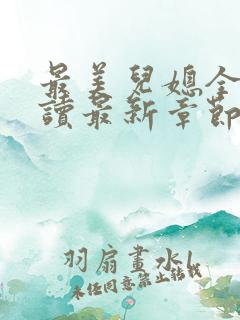 最美兒媳全
讀最新章節
羽扇畫水l
未经同意禁止转载